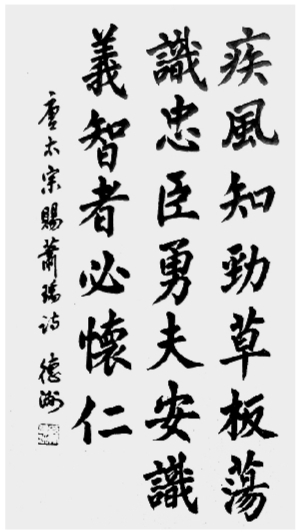 疾風知勁草板蕩
識忠臣勇夫安識
義智者必懷仁
唐太宗賜蕭瑀詩 德洲